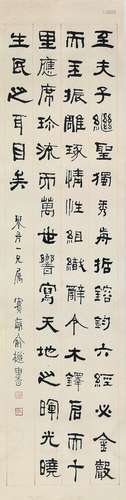 至夫子繼聖獨秀前哲鎔鈞六經必金聲
而玉振雕琢情性組織辭令木鐸启而千
里應席珍流而萬世響寫天地之暉光曉
生民之耳目矣
一兄屬
俞樾書